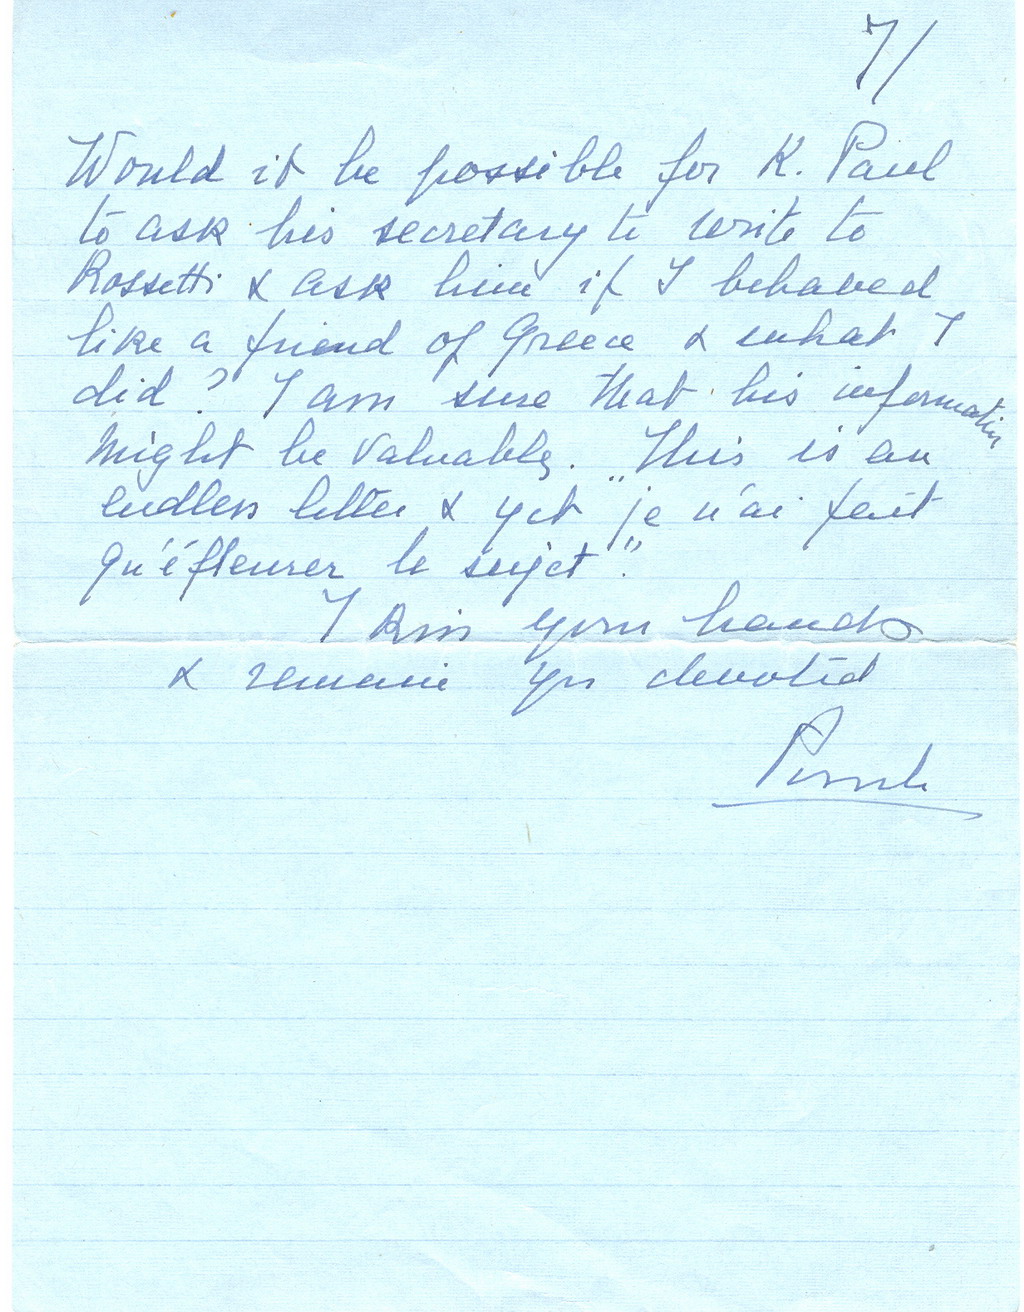 7/
Would it be possible for K. Paul
to ask his secretary to write to
Rossetti & ask him if I behaved
like a friend of Greece & what I
did? I am sure that his information
might be valuable. This is an
endless letter & yet "je n'ai fait
qu'éfleurer le sujet".
I kiss your hands
& remain yrs devoted